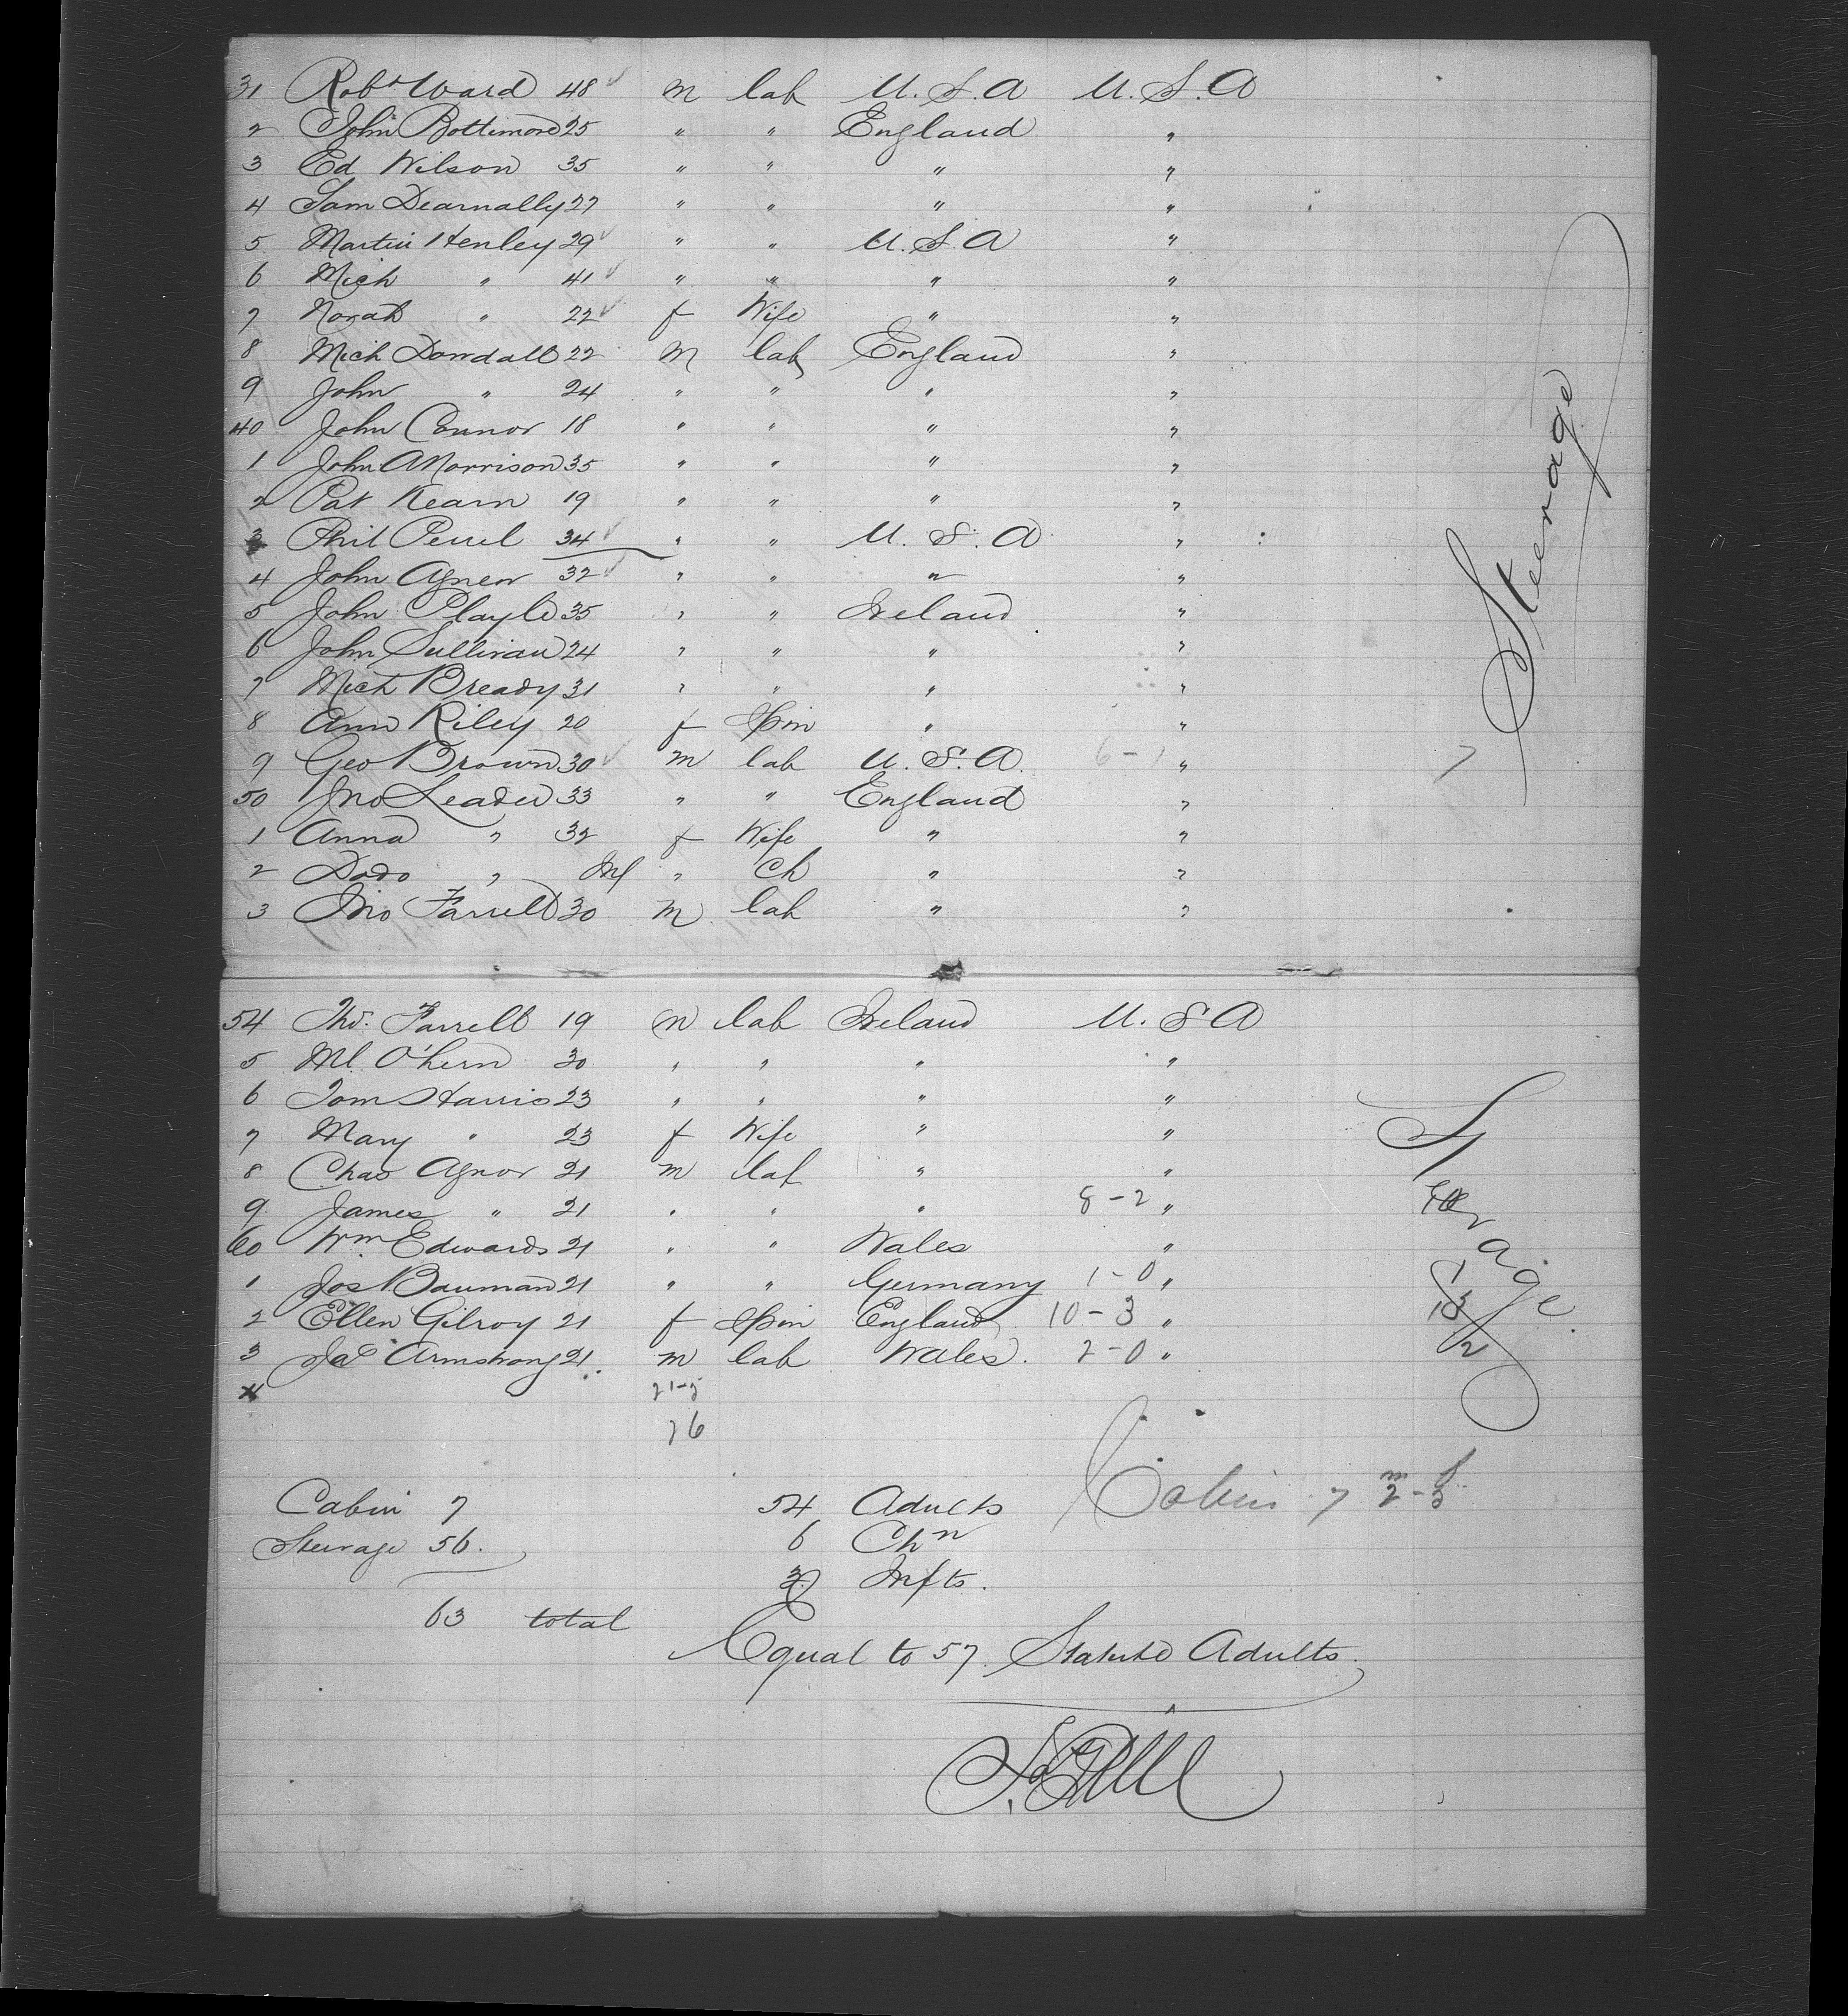 31 Robt Ward 48 m lab U.S.A U.S.A
2 John Bottimore 25 " " England "
3 Ed Wilson 35 " " " "
4 Sam Dearnally 27 " " " "
5 Martin Henley 29 " " U.S.A "
6 Mich " 41 " " " "
7 Norah " 22 f Wife " "
8 Mich Dowdall 22 m lab England "
9 John " 24 " " " "
40 John Connor 18 " " " "
1 John A Morrison 35 " " " "
2 Pat Kearn 19 " " " "
3 Phil 34 " " U.S.A "
4 John Agnew 32 " " " "
5 John Playle 35 " " Ireland "
6 John Sullivan 24 " " " "
7 Mich Bready 31 " " " "
8 Ann Riley 20 f Spin " "
9 Geo Brown 30 m lab U.S.A. 6-1 "
50 Jno Leader 33 " " England "
1 Anna " 32 f Wife " "
2 Dodo " Inf " Ch " "
3 Jno Farrell 30 m lab " "
Steerage
7
54 Tho. Farrell 19 m lab Ireland U.S.A
5 Ml. O'hern 30 " " " "
6 Tom Harris 23 " " " "
7 Mary " 23 f Wife " "
8 Chas Agnor 21 m lab " "
9 James " 21 " " " 8-2 "
60 Wm Edwards 21 " " Wales "
1 Jos Bauman 21 " " Germany 1-0 "
2 Ellen Gilroy 21 f Spin England 10-3 "
3 Jas Armstrong 21 m lab Wales. 2-0 "
4
Steerage
10
1
13
2
76
Cabin 7 m 2 - f 3
Cabin 7 54 Adults
Steerage 56. 6 Chn
Infts.
63 total
Equal to 57 Statute Adults.